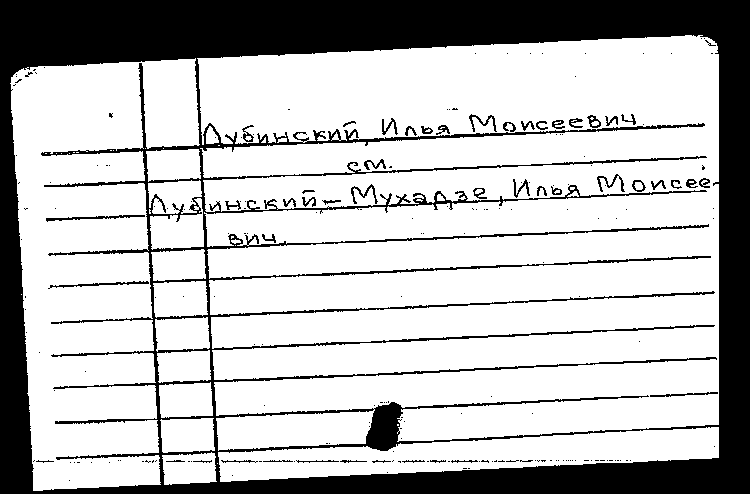 Дубинский, Илья Моисеевич
см.
Дубинский-Мухадзе, Илья Моисее-
вич.